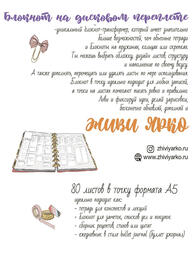 Блокнот на дисковом переплете
-уникальный блокнот-трансформер, который имеет значительно
больше возможностей, чем обычные тетради
и блокноты на пружинке, кольцах или скрепках.
Ты можешь выбрать обложку, дизайн листов, структуру
и наполнение по своему вкусу.
А также дополнять, перемещать или удалять листы по мере использования.
Блокнот в точку идеально подходит для любых записей,
а точки на листах помогают писать ровно и правильно.
Живи и фиксируй идеи, делай зарисовки,
бесконечно обновляй, дополняй и
ЖИВИ ЯРКО
www.zhiviyarko.ru
@zhiviyarko.ru
80 листов в точку формата А5
идеально подходят как:
• тетрадь для конспектов и лекций
• блокнот для заметок, списков дел и покупок
• сборник рецептов, стихов или цитат
• ежедневник в стиле bullet journal (буллет джорнал)